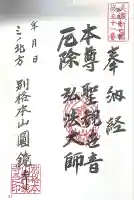 奉納経
本尊聖観世音
厄除弘法大師
年月日
三ノ北方
別格本山圓鏡寺